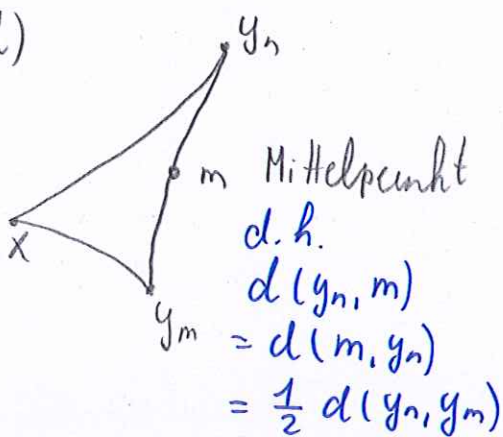 )
yₙ
m Mittelpunkt
x
d.h.
d(yₙ, m)
yₘ = d(m, yₙ)
= ½ d(yₙ, yₘ)